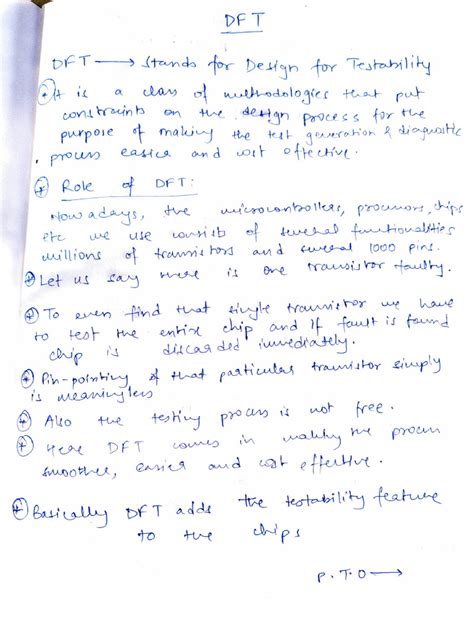 DFT
DFT → Stands for Design for Testability
It is a class of methodologies that put
constraints on the design process for the
purpose of making the test generation & diagnostic
process easier and cost effective.
Role of DFT:
Nowadays, the microcontrollers, processors, chips
etc we use consists of several functionalities
millions of transistors and several 1000 pins.
Let us say there is one transistor faulty.
To even find that single transistor we have
to test the entire chip and if fault is found
chip is discarded immediately.
Pin-pointing of that particular transistor simply
is meaningless
Also the testing process is not free.
Here DFT comes in making the process
smoother, easier and cost effective.
Basically DFT adds the testability feature
to the chips
P.T.O →